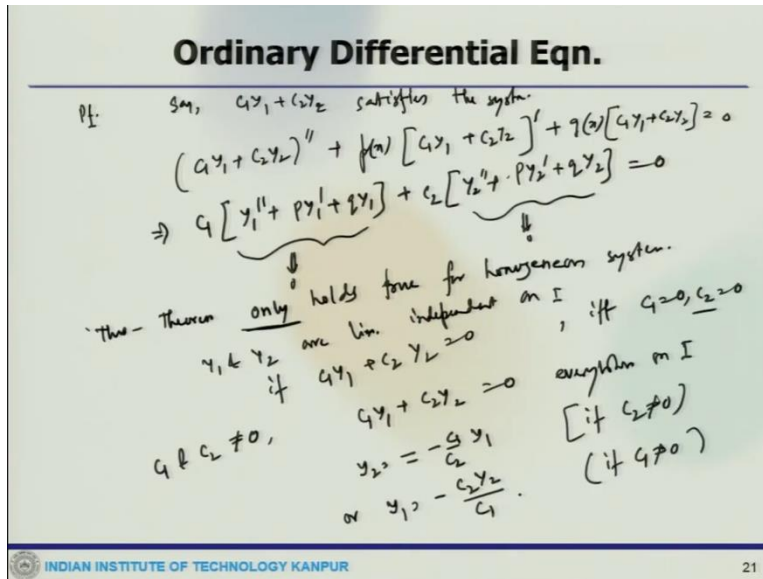 Ordinary Differential Eqn.
Pf. Say, c₁y₁ + c₂y₂ satisfies the system.
(c₁y₁ + c₂y₂)'' + p(x) [c₁y₁ + c₂y₂]' + q(x) [c₁y₁ + c₂y₂] = 0
⇒ c₁ [y₁'' + py₁' + qy₁] + c₂ [y₂'' + py₂' + qy₂] = 0
⇓ 0 ⇓ 0
Theorem only holds true for homogeneous system.
y₁ & y₂ are lin. independent on I
if c₁y₁ + c₂y₂ = 0 , iff c₁ = 0, c₂ = 0
c₁y₁ + c₂y₂ = 0 everywhere on I
c₁ & c₂ ≠ 0,
y₂ = -c₁/c₂ y₁ [if c₂ ≠ 0)
or y₁ = - c₂y₂/c₁ . (if c₁ ≠ 0)
INDIAN INSTITUTE OF TECHNOLOGY KANPUR
21